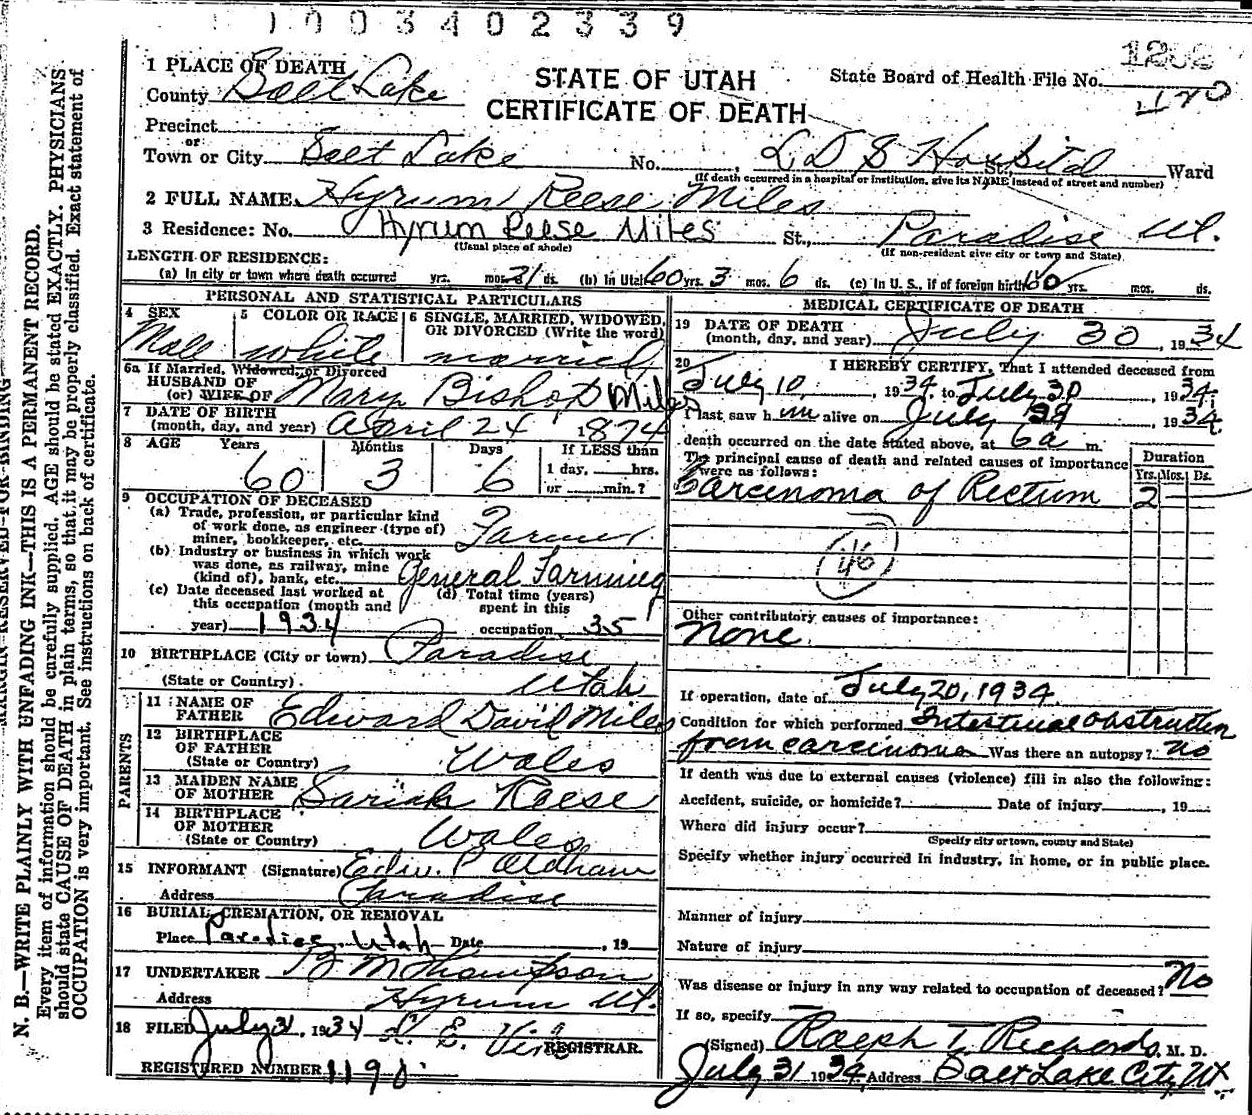 1003402339
1 PLACE OF DEATH
County Salt Lake
STATE OF UTAH
CERTIFICATE OF DEATH
State Board of Health File No.
Precinct
or
Town or City Salt Lake No. , L D S Hospital St., Ward
(If death occurred in a hospital or institution, give its NAME instead of street and number)
2 FULL NAME Hyrum Reese Miles
3 Residence: No. Hyrum Reese Miles St., Paradise Ut.
(Usual place of abode) (If non-resident give city or town and State)
LENGTH OF RESIDENCE:
(a) In city or town where death occurred yrs. mos. 21 ds. (b) In Utah 60 yrs. 3 mos. 6 ds. (c) In U. S., if of foreign birth 60 yrs. mos. ds.
PERSONAL AND STATISTICAL PARTICULARS
4 SEX 5 COLOR OR RACE 6 SINGLE, MARRIED, WIDOWED, OR DIVORCED (Write the word)
Male white married
6a If Married, Widowed, or Divorced
HUSBAND OF
(or) WIFE OF Mary Bishop Miles
7 DATE OF BIRTH
(month, day, and year) April 24 1874
8 AGE Years Months Days If LESS than
60 3 6 1 day, hrs.
or min.?
9 OCCUPATION OF DECEASED
(a) Trade, profession, or particular kind
of work done, as engineer (type of)
miner, bookkeeper, etc. Farmer
(b) Industry or business in which work
was done, as railway, mine
(kind of), bank, etc. General Farming
(c) Date deceased last worked at (d) Total time (years)
this occupation (month and spent in this
year) 1934 occupation 35
10 BIRTHPLACE (City or town) Paradise
(State or Country) Utah
PARENTS
11 NAME OF
FATHER Edward David Miles
12 BIRTHPLACE
OF FATHER
(State or Country) Wales
13 MAIDEN NAME
OF MOTHER Sariah Reese
14 BIRTHPLACE
OF MOTHER
(State or Country) Wales
15 INFORMANT (Signature) Edw. P Oldham
Address Paradise
16 BURIAL, CREMATION, OR REMOVAL
Place Paradise, Utah Date , 19
17 UNDERTAKER Thompson
Address Hyrum Ut.
18 FILED July 31 1934
REGISTRAR.
REGISTERED NUMBER 1190
MEDICAL CERTIFICATE OF DEATH
19 DATE OF DEATH
(month, day, and year) July 30, 1934
20 I HEREBY CERTIFY, That I attended deceased from
July 10, 1934 to July 30, 1934.
I last saw him alive on July 29, 1934,
death occurred on the date stated above, at 6 a m.
The principal cause of death and related causes of importance
were as follows:
Duration
Yrs. Mos. Ds.
Carcinoma of Rectum 2
46
Other contributory causes of importance:
None
If operation, date of July 20, 1934
Condition for which performed Intestinal obstruction
from carcinoma Was there an autopsy? no
If death was due to external causes (violence) fill in also the following:
Accident, suicide, or homicide? Date of injury , 19
Where did injury occur?
(Specify city or town, county and State)
Specify whether injury occurred in industry, in home, or in public place.
Manner of injury
Nature of injury
Was disease or injury in any way related to occupation of deceased? No
If so, specify
(Signed) Ralph T. Richards, M. D.
July 31 1934, Address Salt Lake City, Ut.
N. B.—WRITE PLAINLY WITH UNFADING INK—THIS IS A PERMANENT RECORD.
Every item of information should be carefully supplied. AGE should be stated EXACTLY. PHYSICIANS
should state CAUSE OF DEATH in plain terms, so that it may be properly classified. Exact statement of
OCCUPATION is very important. See instructions on back of certificate.